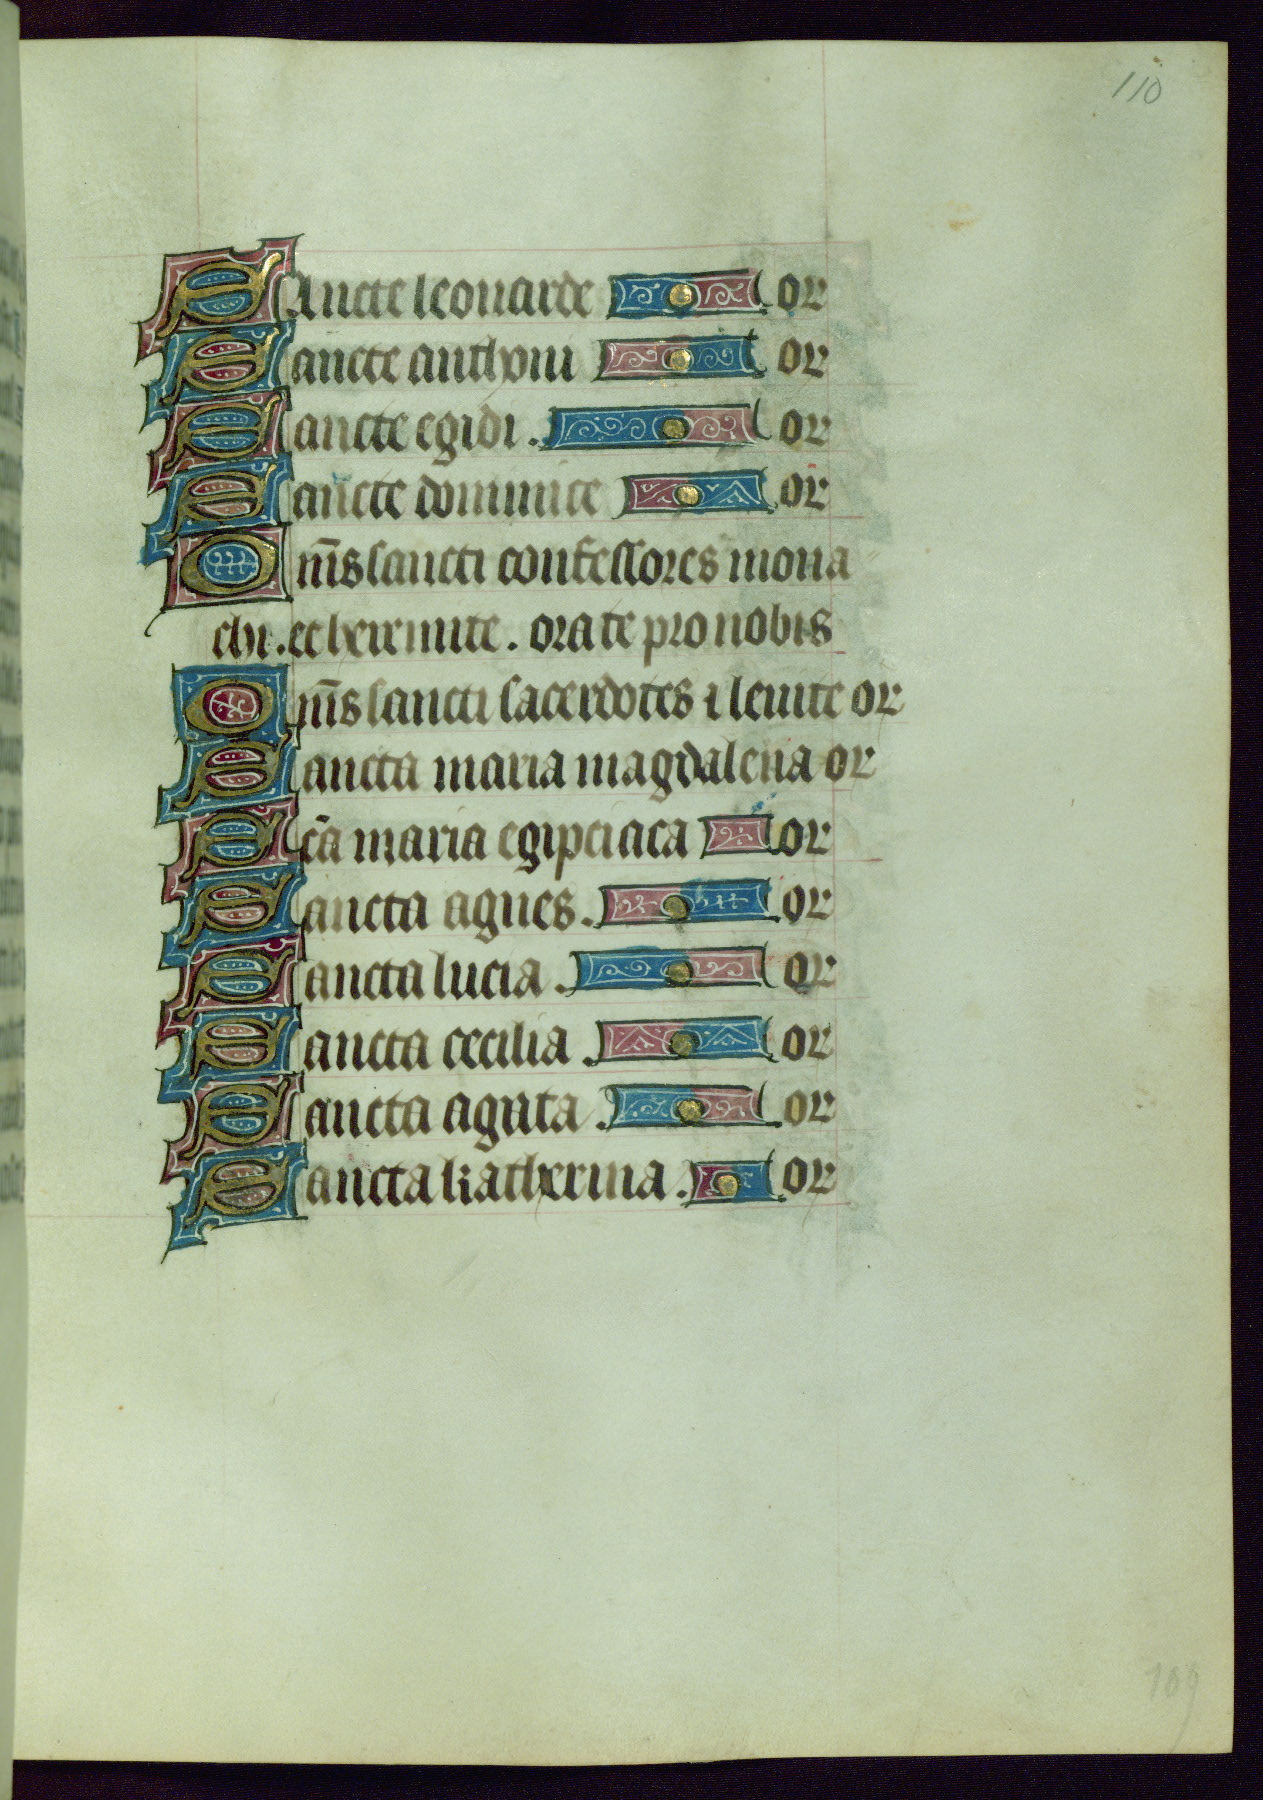 110
SAncte leonarde or
Sancte anthoni or
Sancte egidi . or
Sancte dominice or
Om̅s sancti confessores mona
chi . et heremite . orate pro nobis
Om̅s sancti sacerdotes ⁊ leuite or
Sancta maria magdalena or
Sc̅a maria egipciaca or
Sancta agnes . or
Sancta lucia . or
Sancta cecilia . or
Sancta agata . or
Sancta katherina . or
109